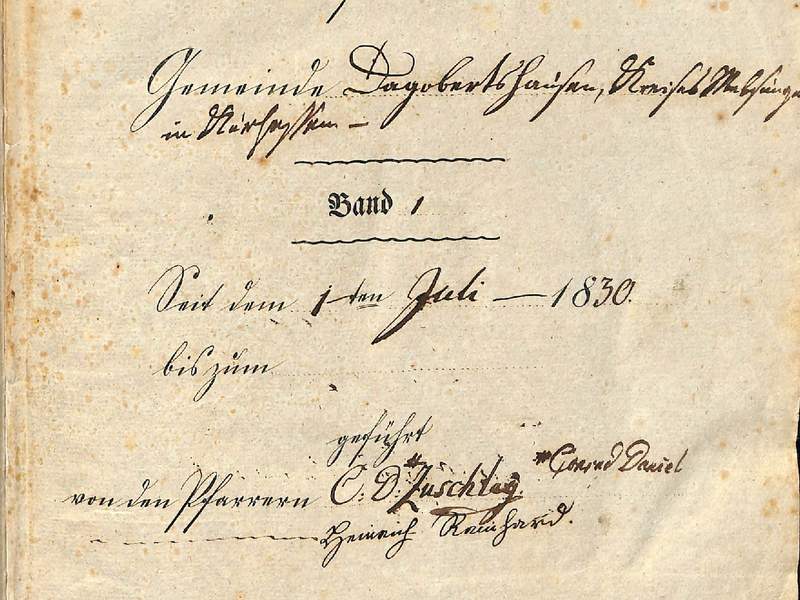 Gemeinde Dagobertshausen, Kreises Melsungen
in Kurhessen –
Band 1
Seit dem 1ten Juli – 1830.
bis zum
geführt
von den Pfarrern C: D: Zuschlag * Conrad Daniel
Heinrich Reinhard.